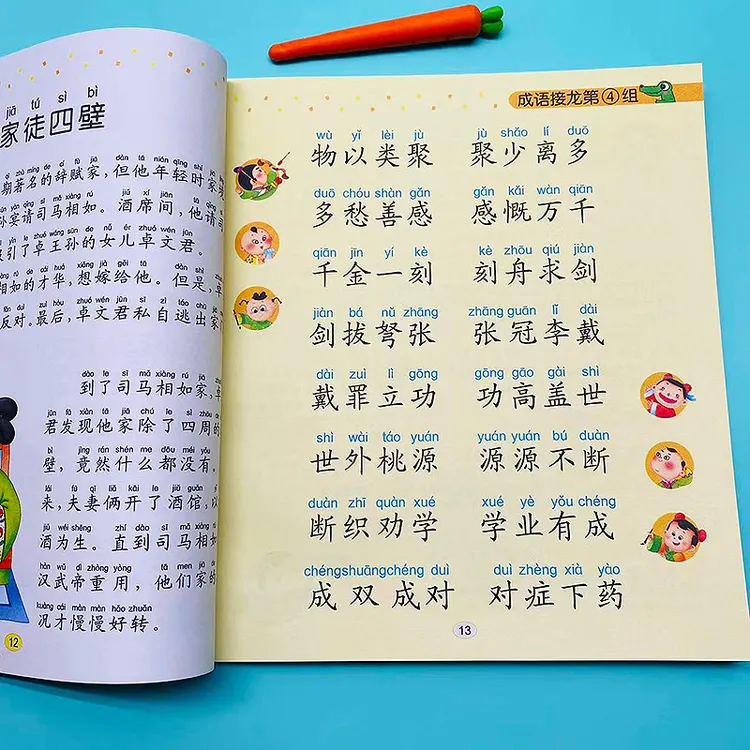 jiā tú sì bì
家徒四壁
期著名的辞赋家，但他年轻时家
孙宴请司马相如。酒席间，他请司
吸引了卓王孙的女儿卓文君。
相如的才华，想嫁给他。但是，卓
反对。最后，卓文君私自逃出家
dào le sī mǎ xiàng rú jiā
到了司马相如家，卓
君发现他家除了四周的
bì jìng rán shén me dōu méi yǒu
壁，竟然什么都没有。
lái fū qī liǎ kāi le jiǔ guǎn yǐ
来，夫妻俩开了酒馆，以
jiǔ wéi shēng zhí dào sī mǎ xiàng rú
酒为生。直到司马相如
hàn wǔ dì zhòng yòng tā men jiā de
汉武帝重用，他们家的
kuàng cái màn màn hǎo zhuǎn
况才慢慢好转。
12
成语接龙第④组
wù yǐ lèi jù jù shǎo lí duō
物以类聚 聚少离多
duō chóu shàn gǎn gǎn kǎi wàn qiān
多愁善感 感慨万千
qiān jīn yí kè kè zhōu qiú jiàn
千金一刻 刻舟求剑
jiàn bá nǔ zhāng zhāng guān lǐ dài
剑拔弩张 张冠李戴
dài zuì lì gōng gōng gāo gài shì
戴罪立功 功高盖世
shì wài táo yuán yuán yuán bú duàn
世外桃源 源源不断
duàn zhī quàn xué xué yè yǒu chéng
断织劝学 学业有成
chéng shuāng chéng duì duì zhèng xià yào
成双成对 对症下药
13